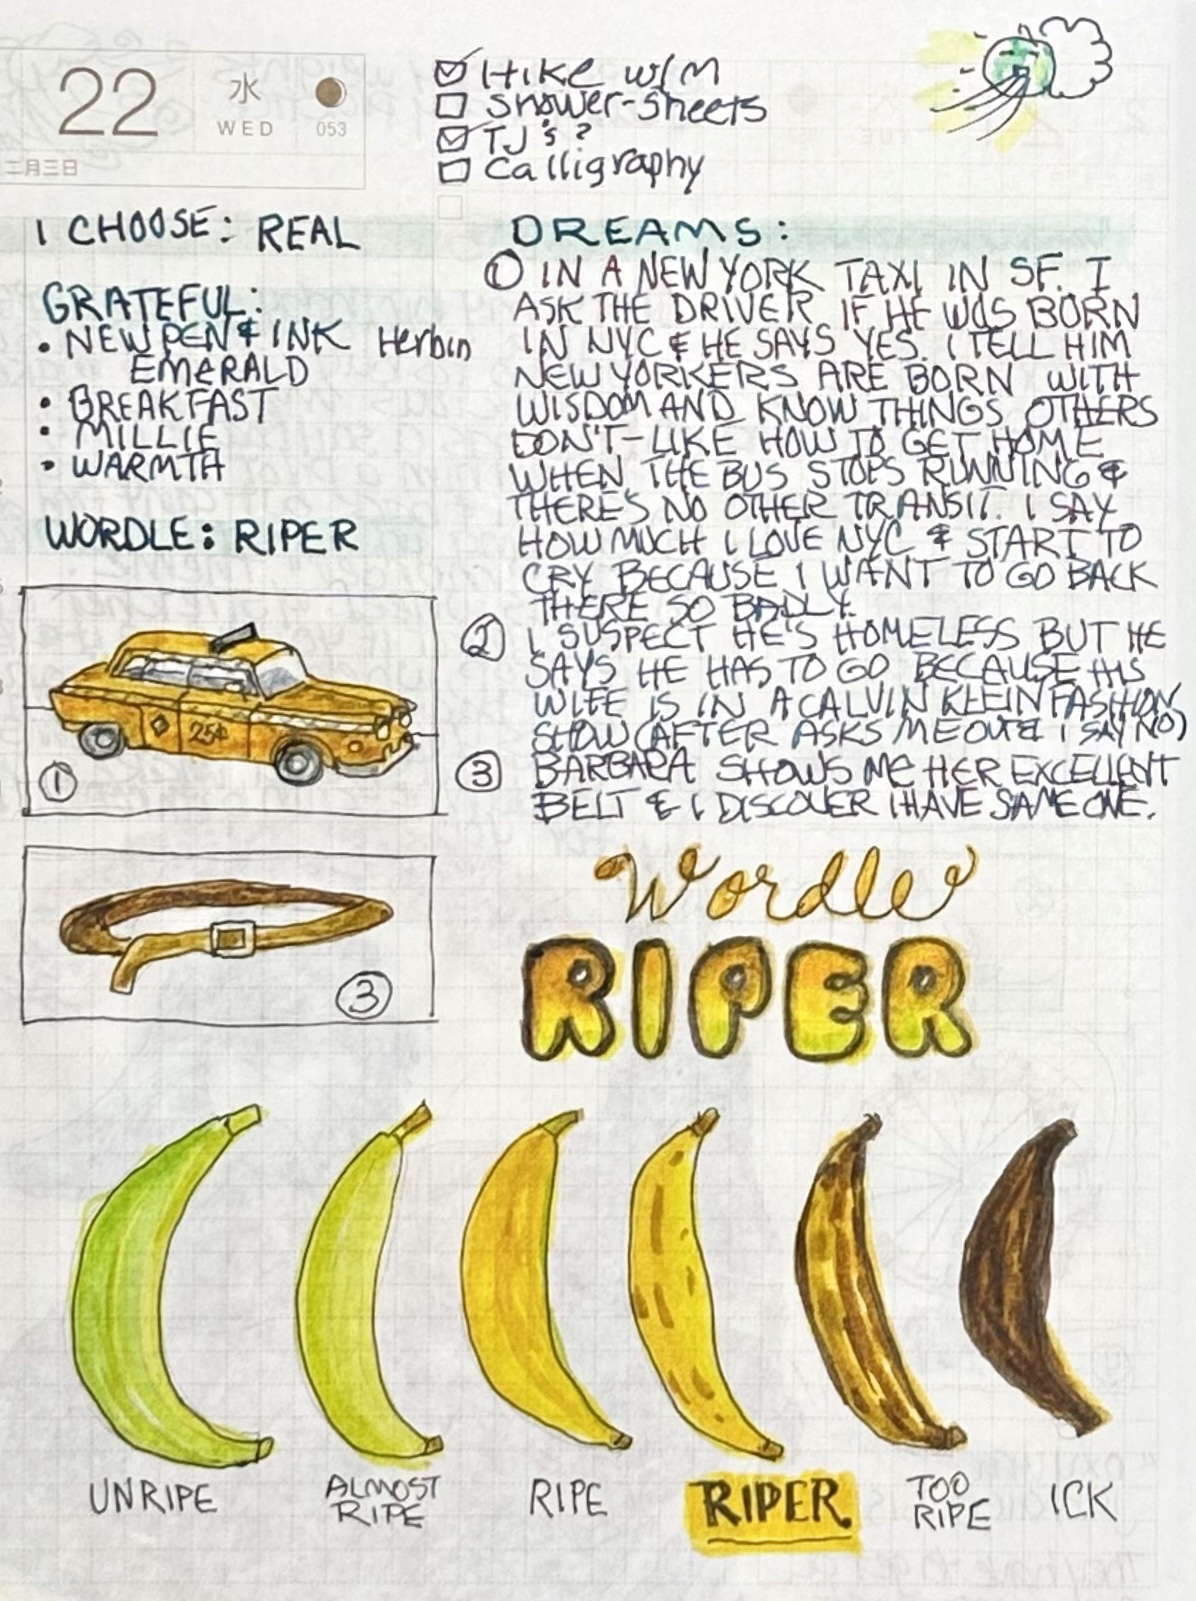 22
水
WED
053
二月三日
Hike w/M
Shower-sheets
TJ's?
Calligraphy
I CHOOSE: REAL
GRATEFUL:
• NEW PEN & INK Herbin
EMERALD
• BREAKFAST
• MILLIE
• WARMTH
WORDLE: RIPER
25¢
1
3
DREAMS:
① IN A NEW YORK TAXI IN SF. I
ASK THE DRIVER IF HE WAS BORN
IN NYC & HE SAYS YES. I TELL HIM
NEW YORKERS ARE BORN WITH
WISDOM AND KNOW THINGS OTHERS
DON'T-LIKE HOW TO GET HOME
WHEN THE BUS STOPS RUNNING &
THERE'S NO OTHER TRANSIT. I SAY
HOW MUCH I LOVE NYC & START TO
CRY BECAUSE I WANT TO GO BACK
THERE SO BADLY.
② I SUSPECT HE'S HOMELESS BUT HE
SAYS HE HAS TO GO BECAUSE HIS
WIFE IS IN A CALVIN KLEIN FASHION
SHOW (AFTER ASKS ME OUT & I SAY NO)
③ BARBARA SHOWS ME HER EXCELLENT
BELT & I DISCOVER I HAVE SAME ONE.
Wordle
RIPER
UNRIPE
ALMOST
RIPE
RIPE
RIPER
TOO
RIPE
ICK